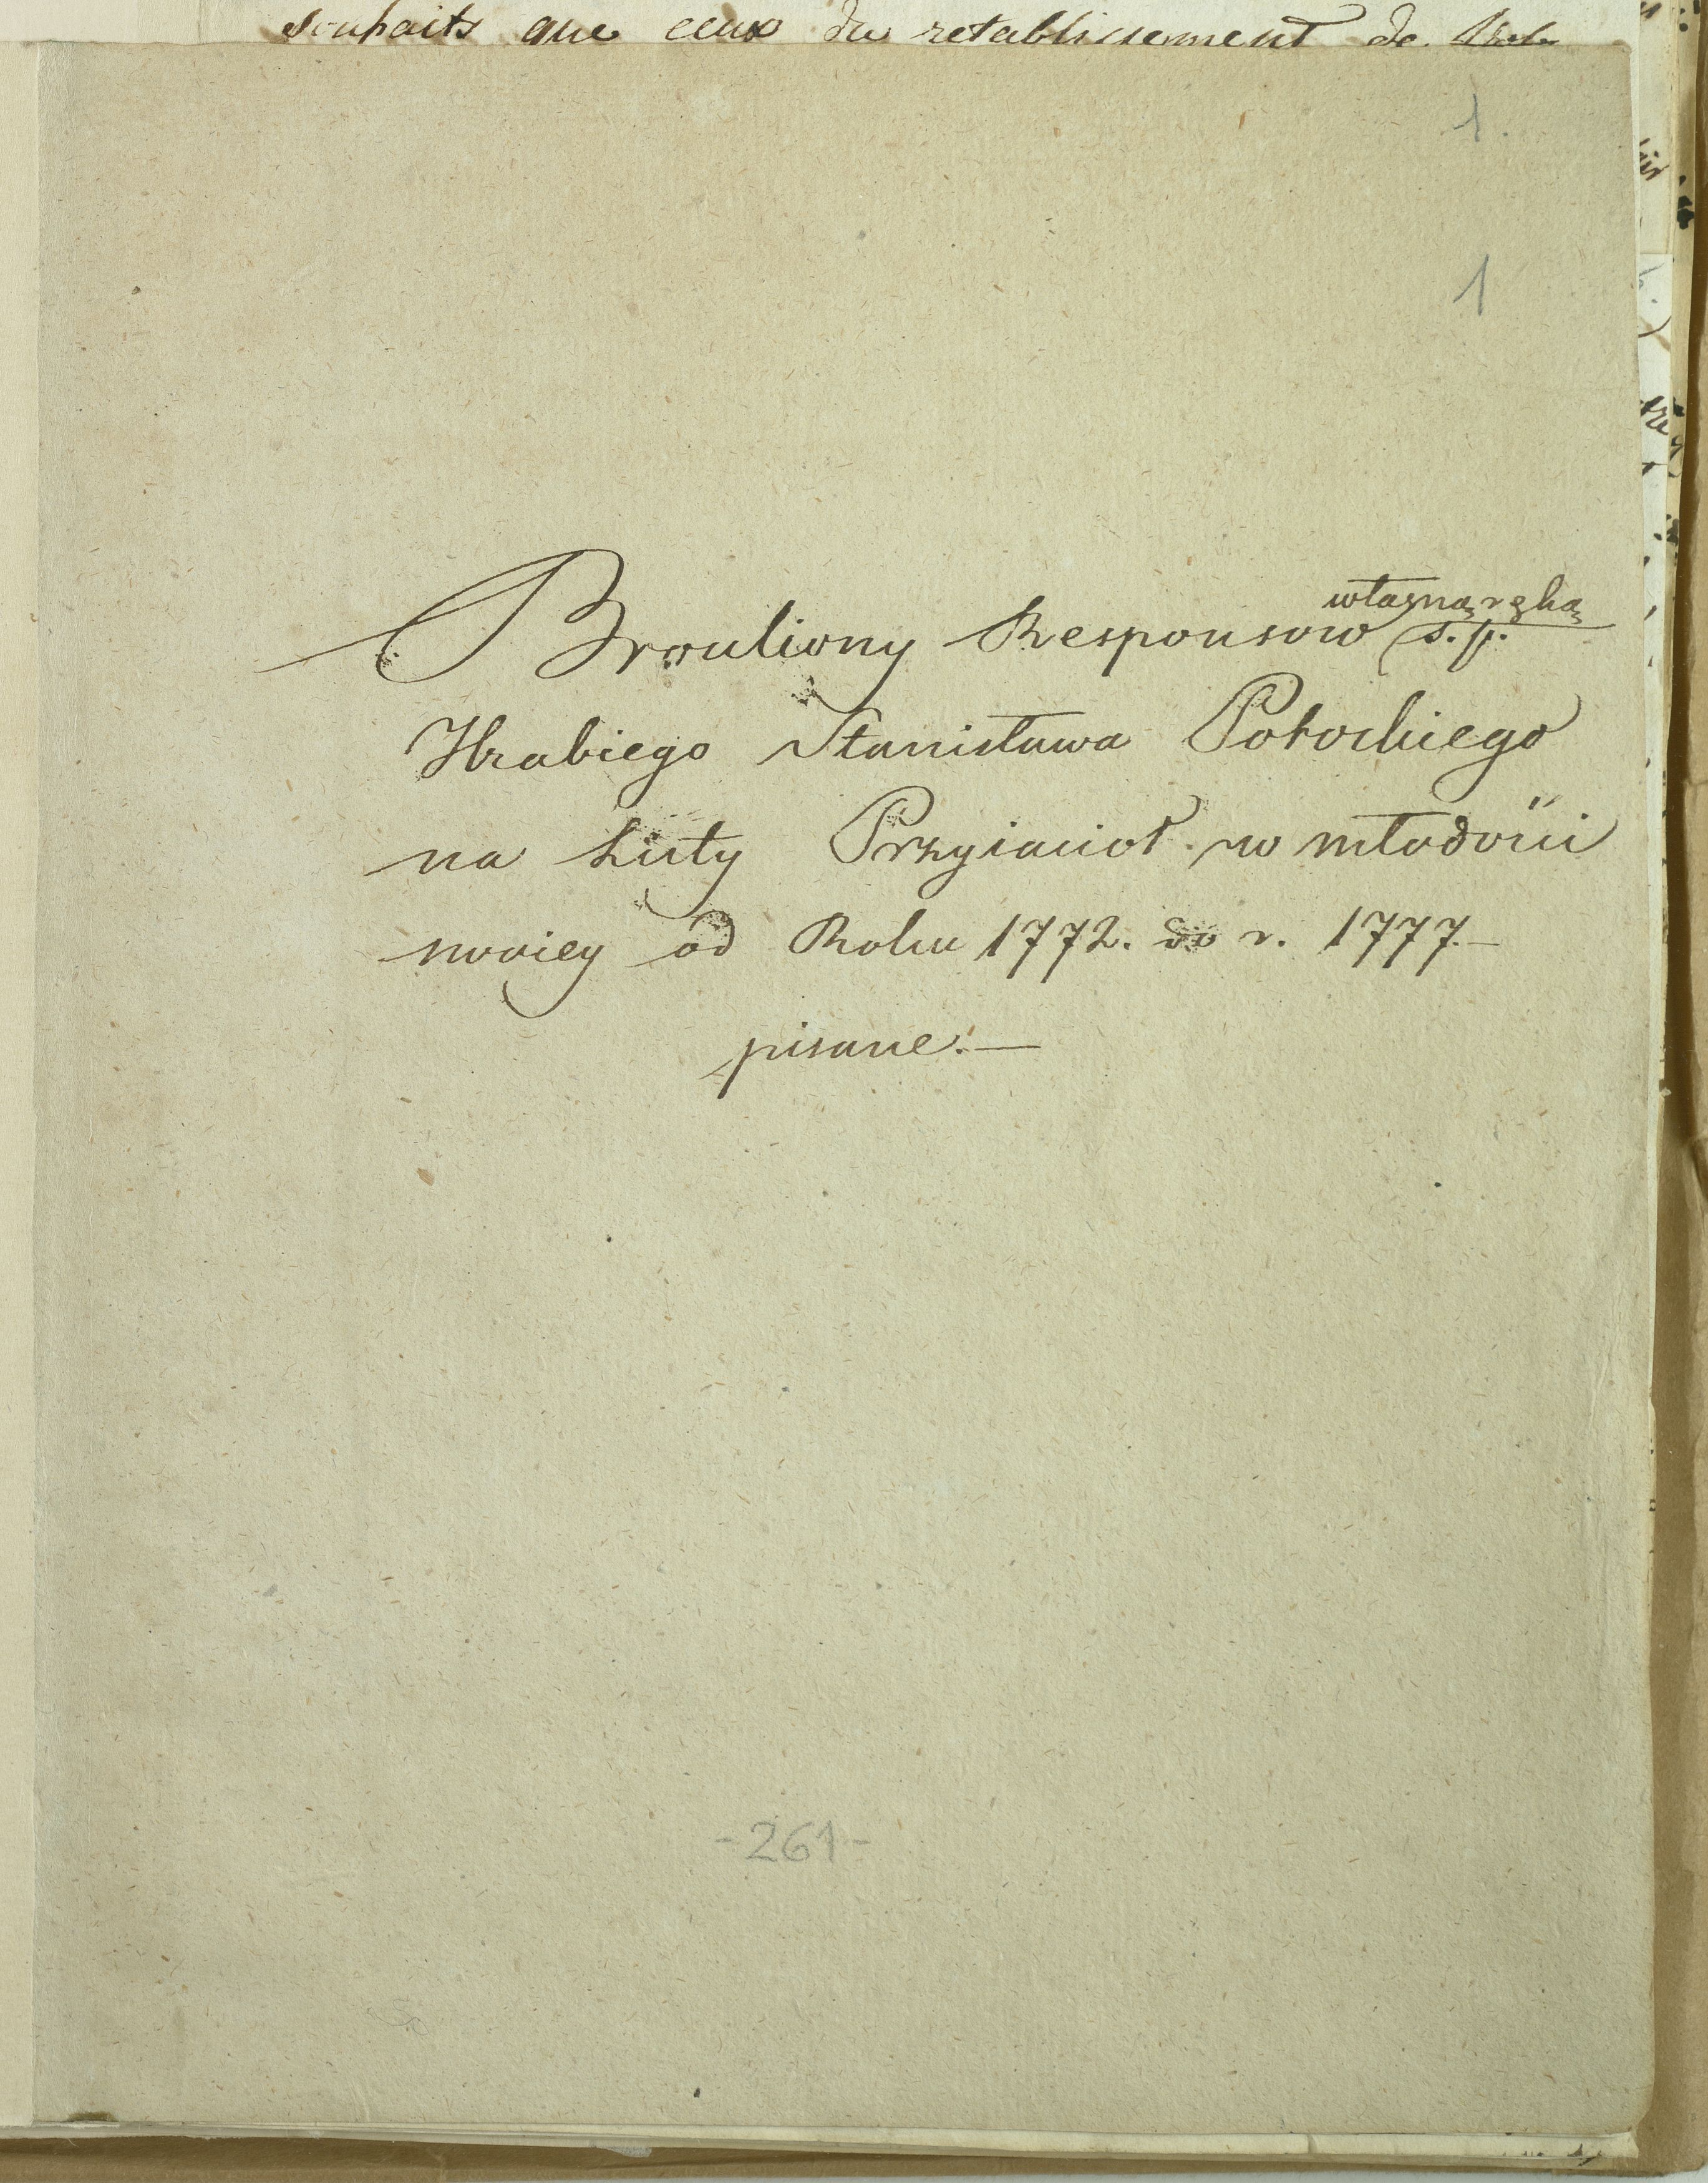 souhaits que ceux du retablissement de
1.
1
własną ręką
Brouliony Responsow s. p.
Hrabiego Stanisława Potockiego
na Listy Przyiaciół w młodości
swoiey od Roku 1772. do r. 1777.—
pisane.—
-261-